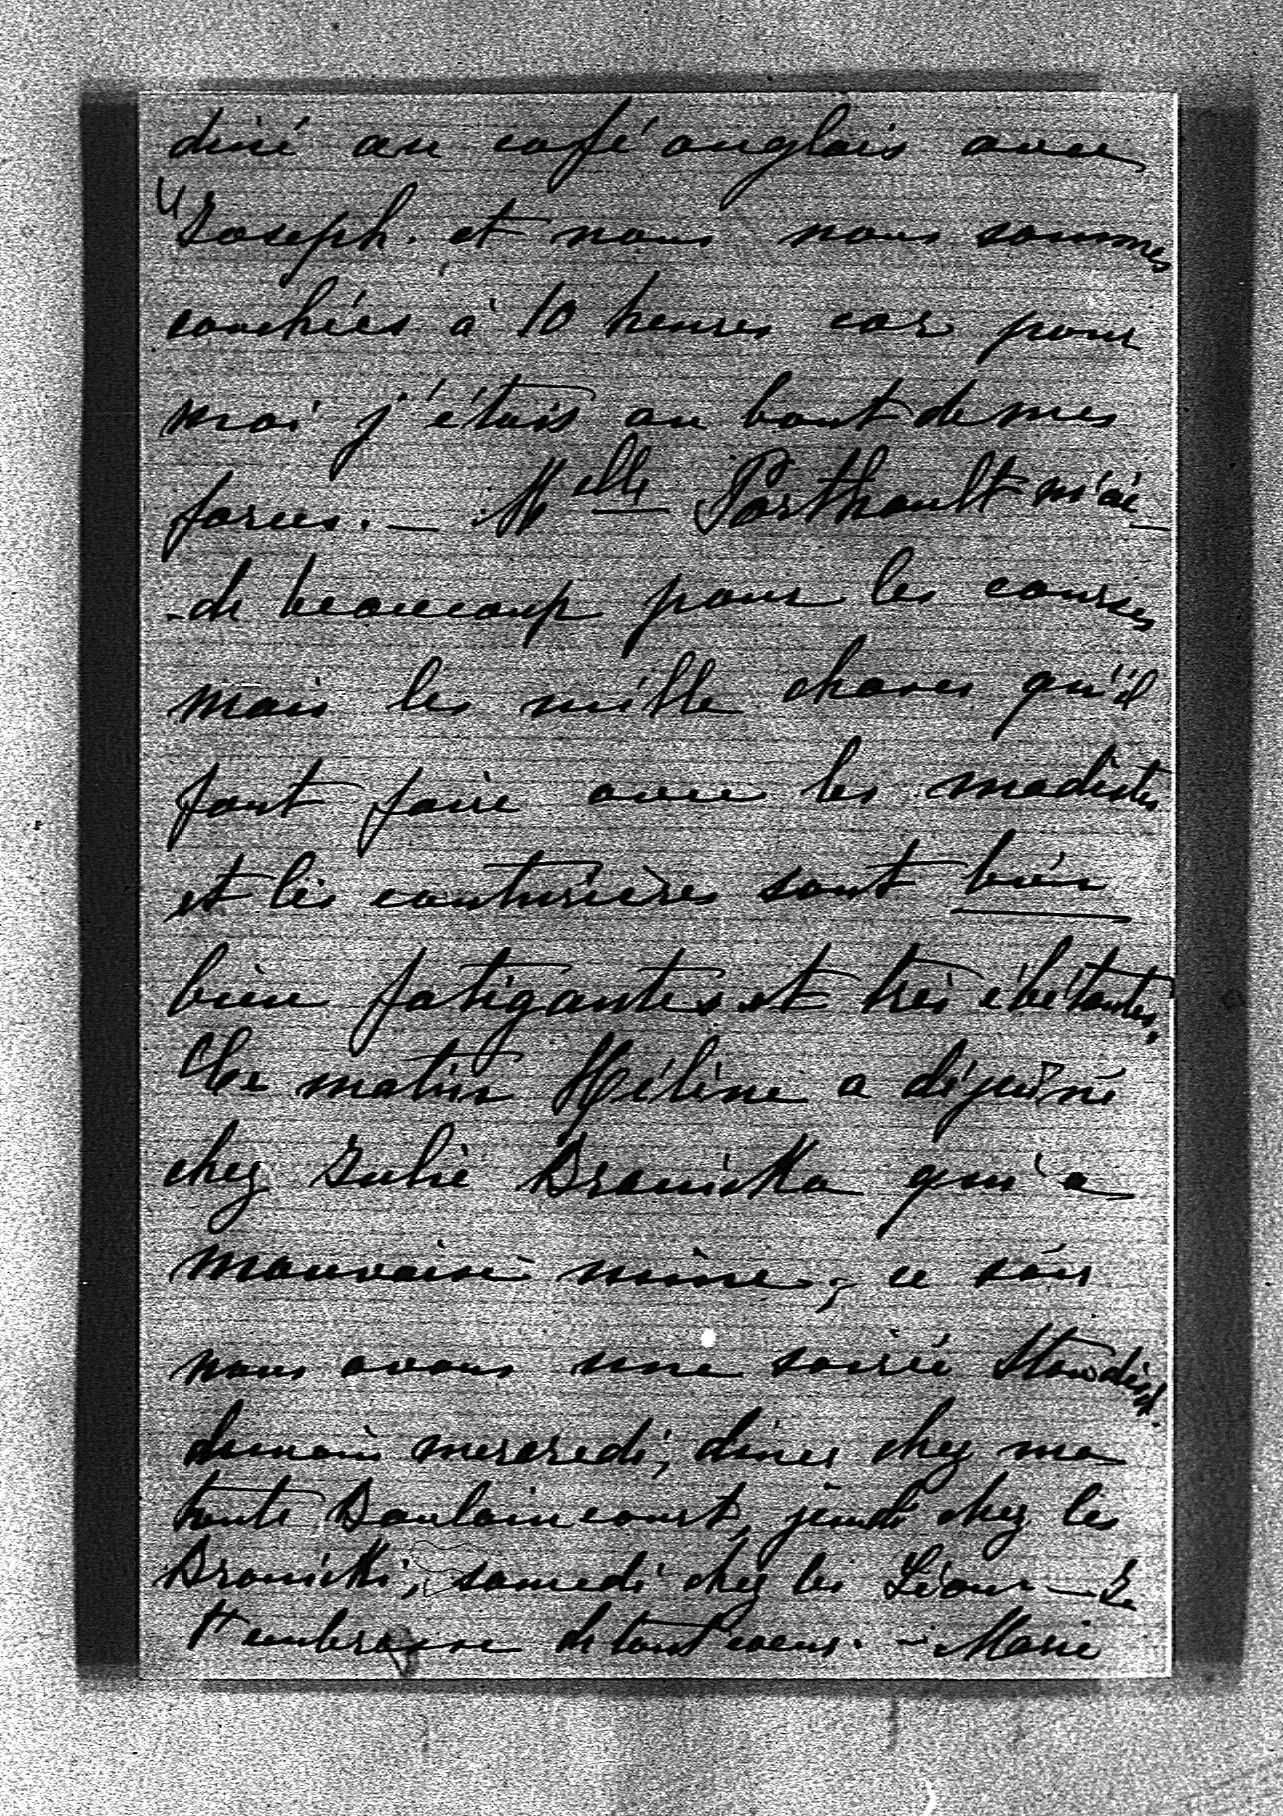 diné au café anglais avec
Joseph. et nous nous sommes
couchées à 10 heures car pour
moi j'étais au bout de mes
forces. — Melle Porthault m'ai-
-de beaucoup pour les courses
mais les mille choses qu'il
faut faire avec les modistes
et les couturières sont bien
bien fatigantes et très ébêtantes.
Ce matin Hélène a déjeuné
chez Julie Branicka qui a
mauvaise mine; ce soir
nous avons une soirée Standish.
demain mercredi, diner chez ma
tante Doulaincourt, jeudi chez les
Branicki, samedi chez les Léour — Je
t'embrasse de tout coeur. — Marie